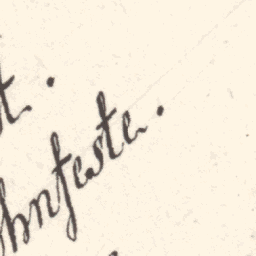 t.
hnfeste.